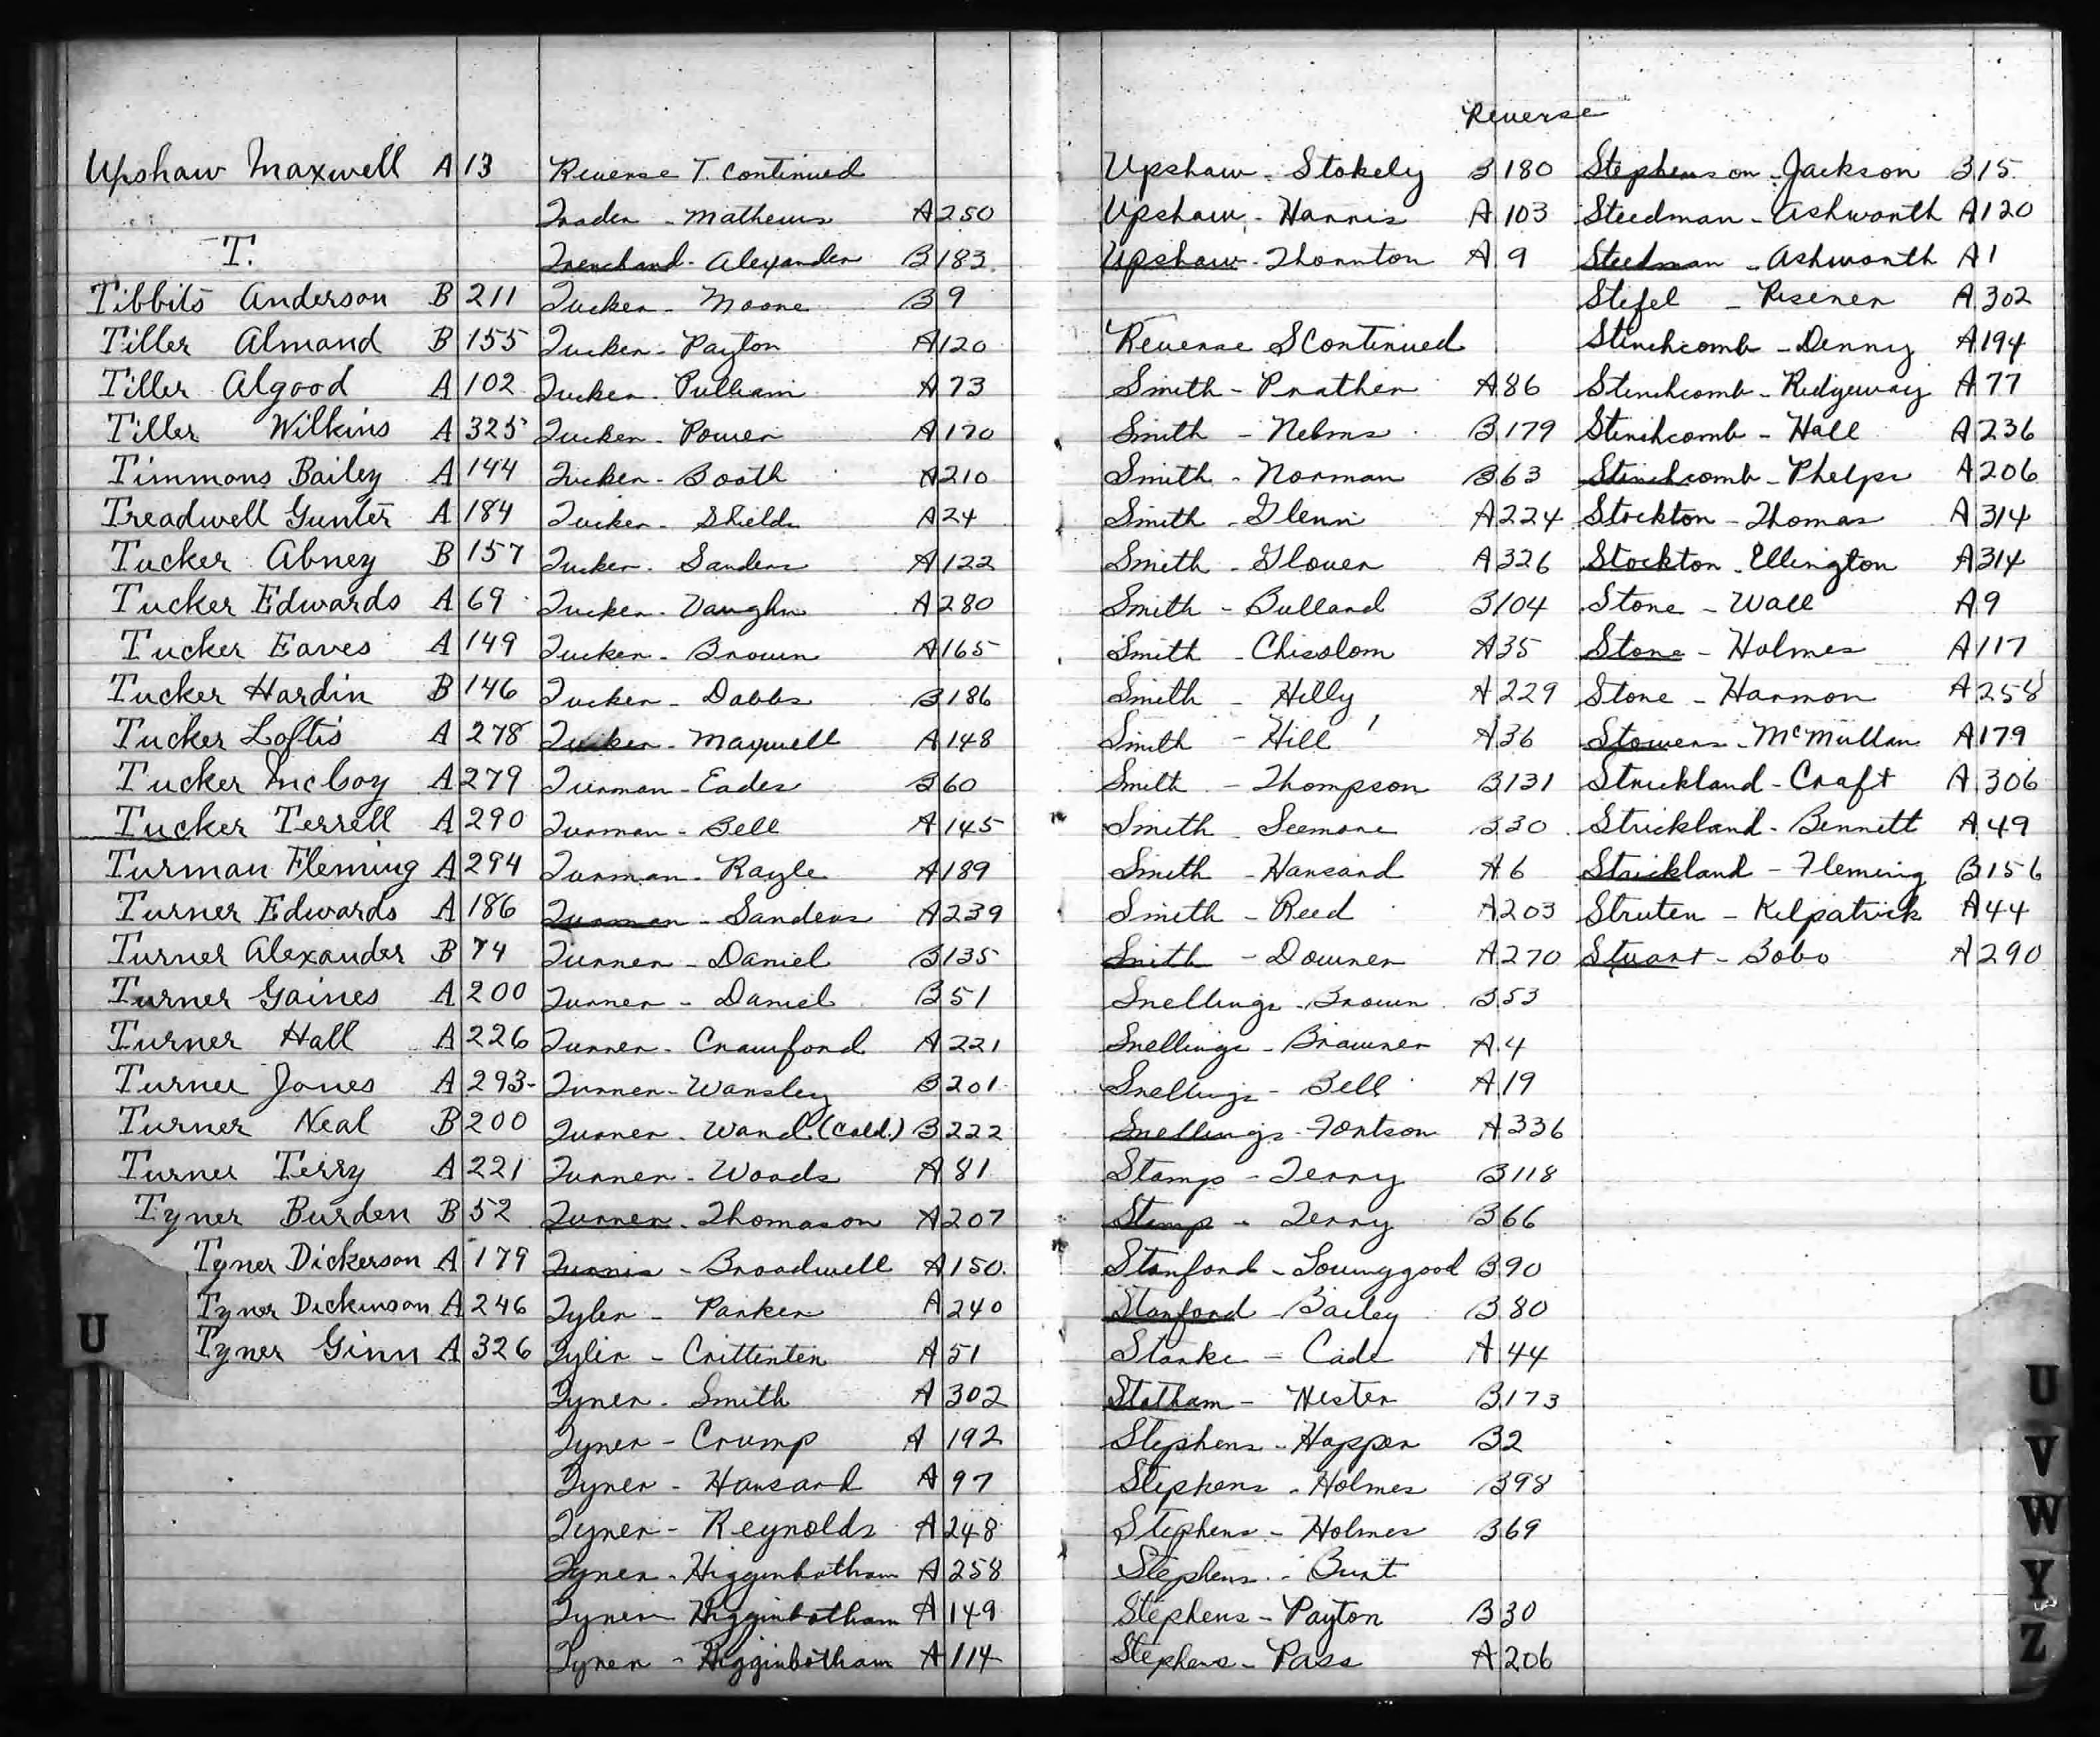 Upshaw Maxwell A 13
T.
Tibbits Anderson B 211
Tiller Almand B 155
Tiller Algood A 102
Tiller Wilkins A 325
Timmons Bailey A 144
Treadwell Gunter A 184
Tucker Abney B 157
Tucker Edwards A 69
Tucker Eaves A 149
Tucker Hardin B 146
Tucker Loftis A 278
Tucker McCoy A 279
Tucker Terrell A 290
Turman Fleming A 294
Turner Edwards A 186
Turner Alexander B 74
Turner Gaines A 200
Turner Hall A 226
Turner Jones A 293
Turner Neal B 200
Turner Terry A 221
Tyner Burden B 52
Tyner Dickerson A 179
Tyner Dickinson A 246
Tyner Ginn A 326
U
Reverse T. Continued
Trader - Mathews A 250
Trenchard - Alexander B 183
Tucker - Moore B 9
Tucker - Payton A 120
Tucker - Pulliam A 73
Tucker - Power A 170
Tucker - Booth A 210
Tucker - Shields A 24
Tucker - Sanders A 122
Tucker - Vaughn A 280
Tucker - Brown A 165
Tucker - Dabbs B 186
Tucker - Maxwell A 148
Turman - Eades B 60
Turman - Bell A 145
Turman - Rayle A 189
Turman - Sanders A 239
Turner - Daniel B 135
Turner - Daniel B 51
Turner - Crawford A 221
Turner - Wansley B 201
Turner - Ward (Cold.) B 222
Turner - Woods A 81
Turner - Thomason A 207
Turnis - Broadwell A 150
Tyler - Parker A 240
Tyler - Crittenten A 51
Tyner - Smith A 302
Tyner - Crump A 192
Tyner - Hansard A 97
Tyner - Reynolds A 248
Tyner - Higginbotham A 258
Tyner - Higginbotham A 149
Tyner - Higginbotham A 114
Reverse
Upshaw - Stokely B 180
Upshaw - Harris A 103
Upshaw - Thornton A 9
Reverse S Continued
Smith - Prather A 86
Smith - Nelms B 179
Smith - Norman B 63
Smith - Glenn A 224
Smith - Glover A 326
Smith - Bullard B 104
Smith - Chisolom A 35
Smith - Hilly A 229
Smith - Hill A 36
Smith - Thompson B 131
Smith - Seemore B 30
Smith - Hansard A 6
Smith - Reed A 203
Smith - Downer A 270
Snellings - Brown B 53
Snellings - Brawner A 4
Snellings - Bell A 19
Snellings - Fortson A 336
Stamps - Terry B 118
Stamp - Terry B 66
Stanford - Younggood B 90
Stanford - Bailey B 80
Starke - Cade A 44
Statham - Hester B 173
Stephens - Hopper B 2
Stephens - Holmes B 98
Stephens - Holmes B 69
Stephens - Burt
Stephens - Payton B 30
Stephens - Pass A 206
Stephenson - Jackson B 15
Steedman - Ashworth A 120
Steedman - Ashworth A 1
Stefel - Risener A 302
Stinchcomb - Denny A 194
Stinchcomb - Ridgeway A 77
Stinchcomb - Hall A 236
Stinchcomb - Phelps A 206
Stockton - Thomas A 314
Stockton - Ellington A 314
Stone - Wall A 9
Stone - Holmes A 117
Stone - Harmon A 258
Stowers - McMullan A 179
Strickland - Craft A 306
Strickland - Bennett A 49
Strickland - Fleming B 156
Struten - Kilpatrick A 44
Stuart - Bobo A 290
U
V
W
Y
Z